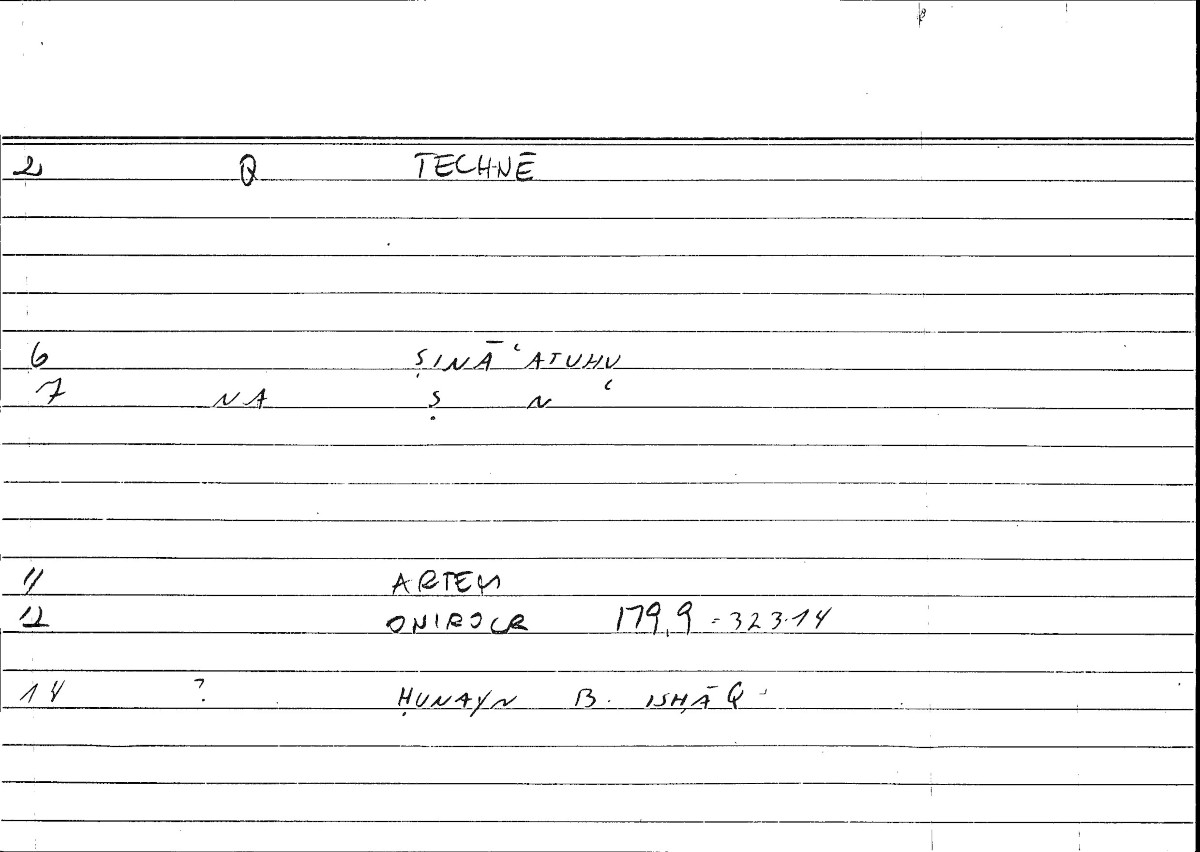 2 Q TECHNĒ
6 ṢINĀʿATUHU
7 NA Ṣ N ʿ
11 ARTEM
12 ONIROCR 179,9 = 323.14
14 ? ḤUNAYN B. ISḤĀQ